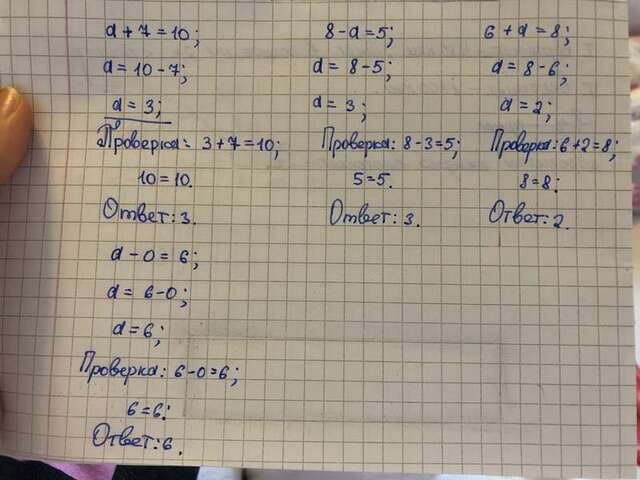 a + 7 = 10;
a = 10 - 7;
a = 3;
Проверка: 3 + 7 = 10;
10 = 10.
Ответ: 3.
8 - a = 5;
a = 8 - 5;
a = 3;
Проверка: 8 - 3 = 5;
5 = 5.
Ответ: 3.
6 + a = 8;
a = 8 - 6;
a = 2;
Проверка: 6 + 2 = 8;
8 = 8.
Ответ: 2.
a - 0 = 6;
a = 6 - 0;
a = 6;
Проверка: 6 - 0 = 6;
6 = 6.
Ответ: 6.